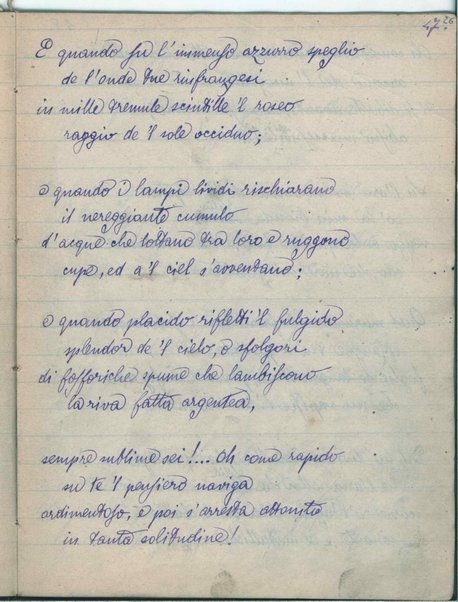 47. 26
E quando su l'immenso azzurro speglio
de l'onde tue risfrangesi
in mille tremule scintille 'l roseo
raggio de 'l sole occiduo;
e quando i lampi lividi rischiarano
il nereggiante cumulo
d'acque che lottano tra loro e ruggono
cupe, ed a 'l ciel s'avventano;
e quando placido rifletti 'l fulgido
splendor de 'l cielo, e sfolgori
di fosforiche spume che lambiscono
la riva fatta argentea,
sempre sublime sei!... Oh come rapido
su te 'l pensiero naviga
ardimentoso, e poi s'arresta attonito
in tanta solitudine!